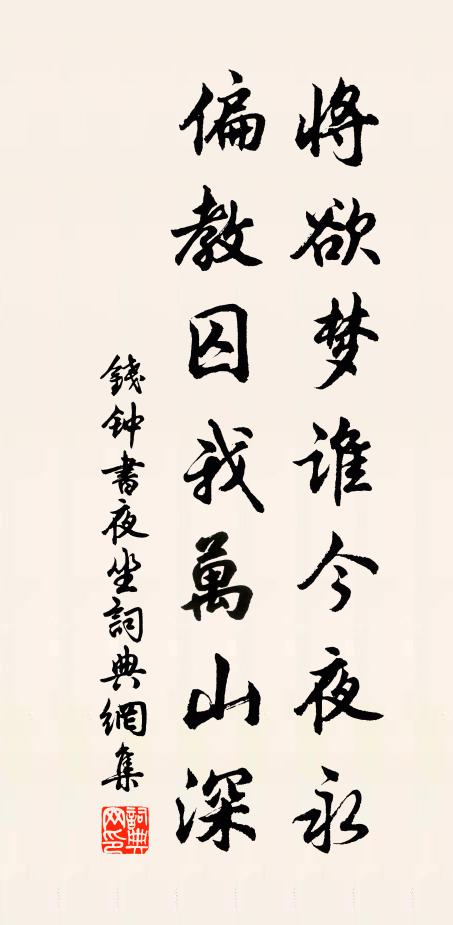 将欲梦谁今夜永
偏教囚我萬山深
錢钟書夜坐詞典網集
詞典網印